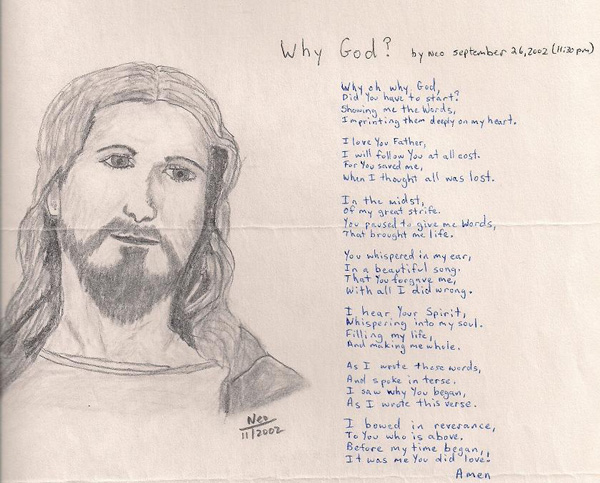 Why God? by Neo september 26, 2002 (11:30 pm)
Why oh why God,
Did You have to start?
Showing me the Words,
Imprinting them deeply on my heart.
I love You Father,
I will follow You at all cost.
For You saved me,
When I thought all was lost.
In the midst,
Of my great strife.
You paused to give me Words,
That brought me life.
You whispered in my ear,
In a beautiful song.
That You forgave me,
With all I did wrong.
I hear Your Spirit,
Whispering into my soul.
Filling my life,
And making me whole.
As I wrote these words,
And spoke in terse.
I saw why You began,
As I wrote this verse.
I bowed in reverance,
To You who is above.
Before my time began,
It was me You did love.
Amen
Neo
11/2002